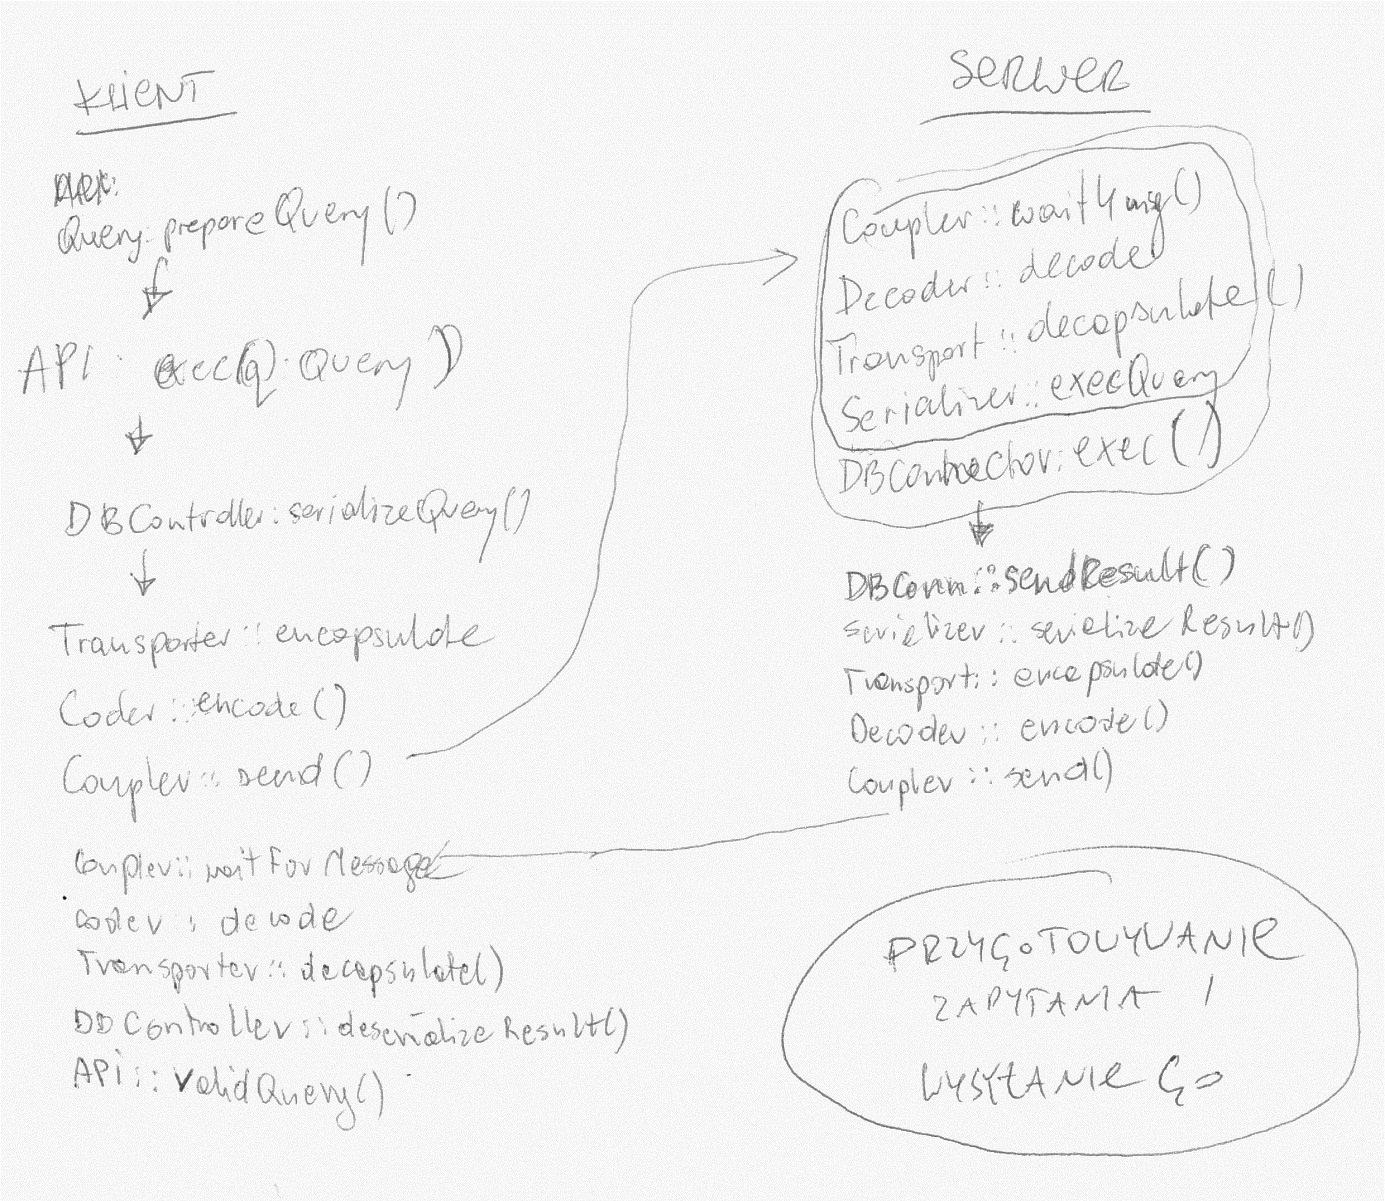 KLIENT
Query: prepareQuery()
API : exec(q: Query)
DBController: serializeQuery()
Transporter :: encapsulate
Coder :: encode()
Coupler :: send()
Coupler :: waitForMessage
coder : decode
Transporter :: decapsulate()
DBController :: deserializeResult()
API :: validQuery()
SERWER
Coupler :: wait4msg()
Decoder :: decode
Transport :: decapsulate()
Serializer :: execQuery
DBConnector: exec()
DBConn :: sendResult()
serializer :: serializeResult()
Transport :: encapsulate()
Decoder :: encode()
Coupler :: send()
PRZYGOTOWYWANIE
ZAPYTANIA I
WYSYŁANIE GO